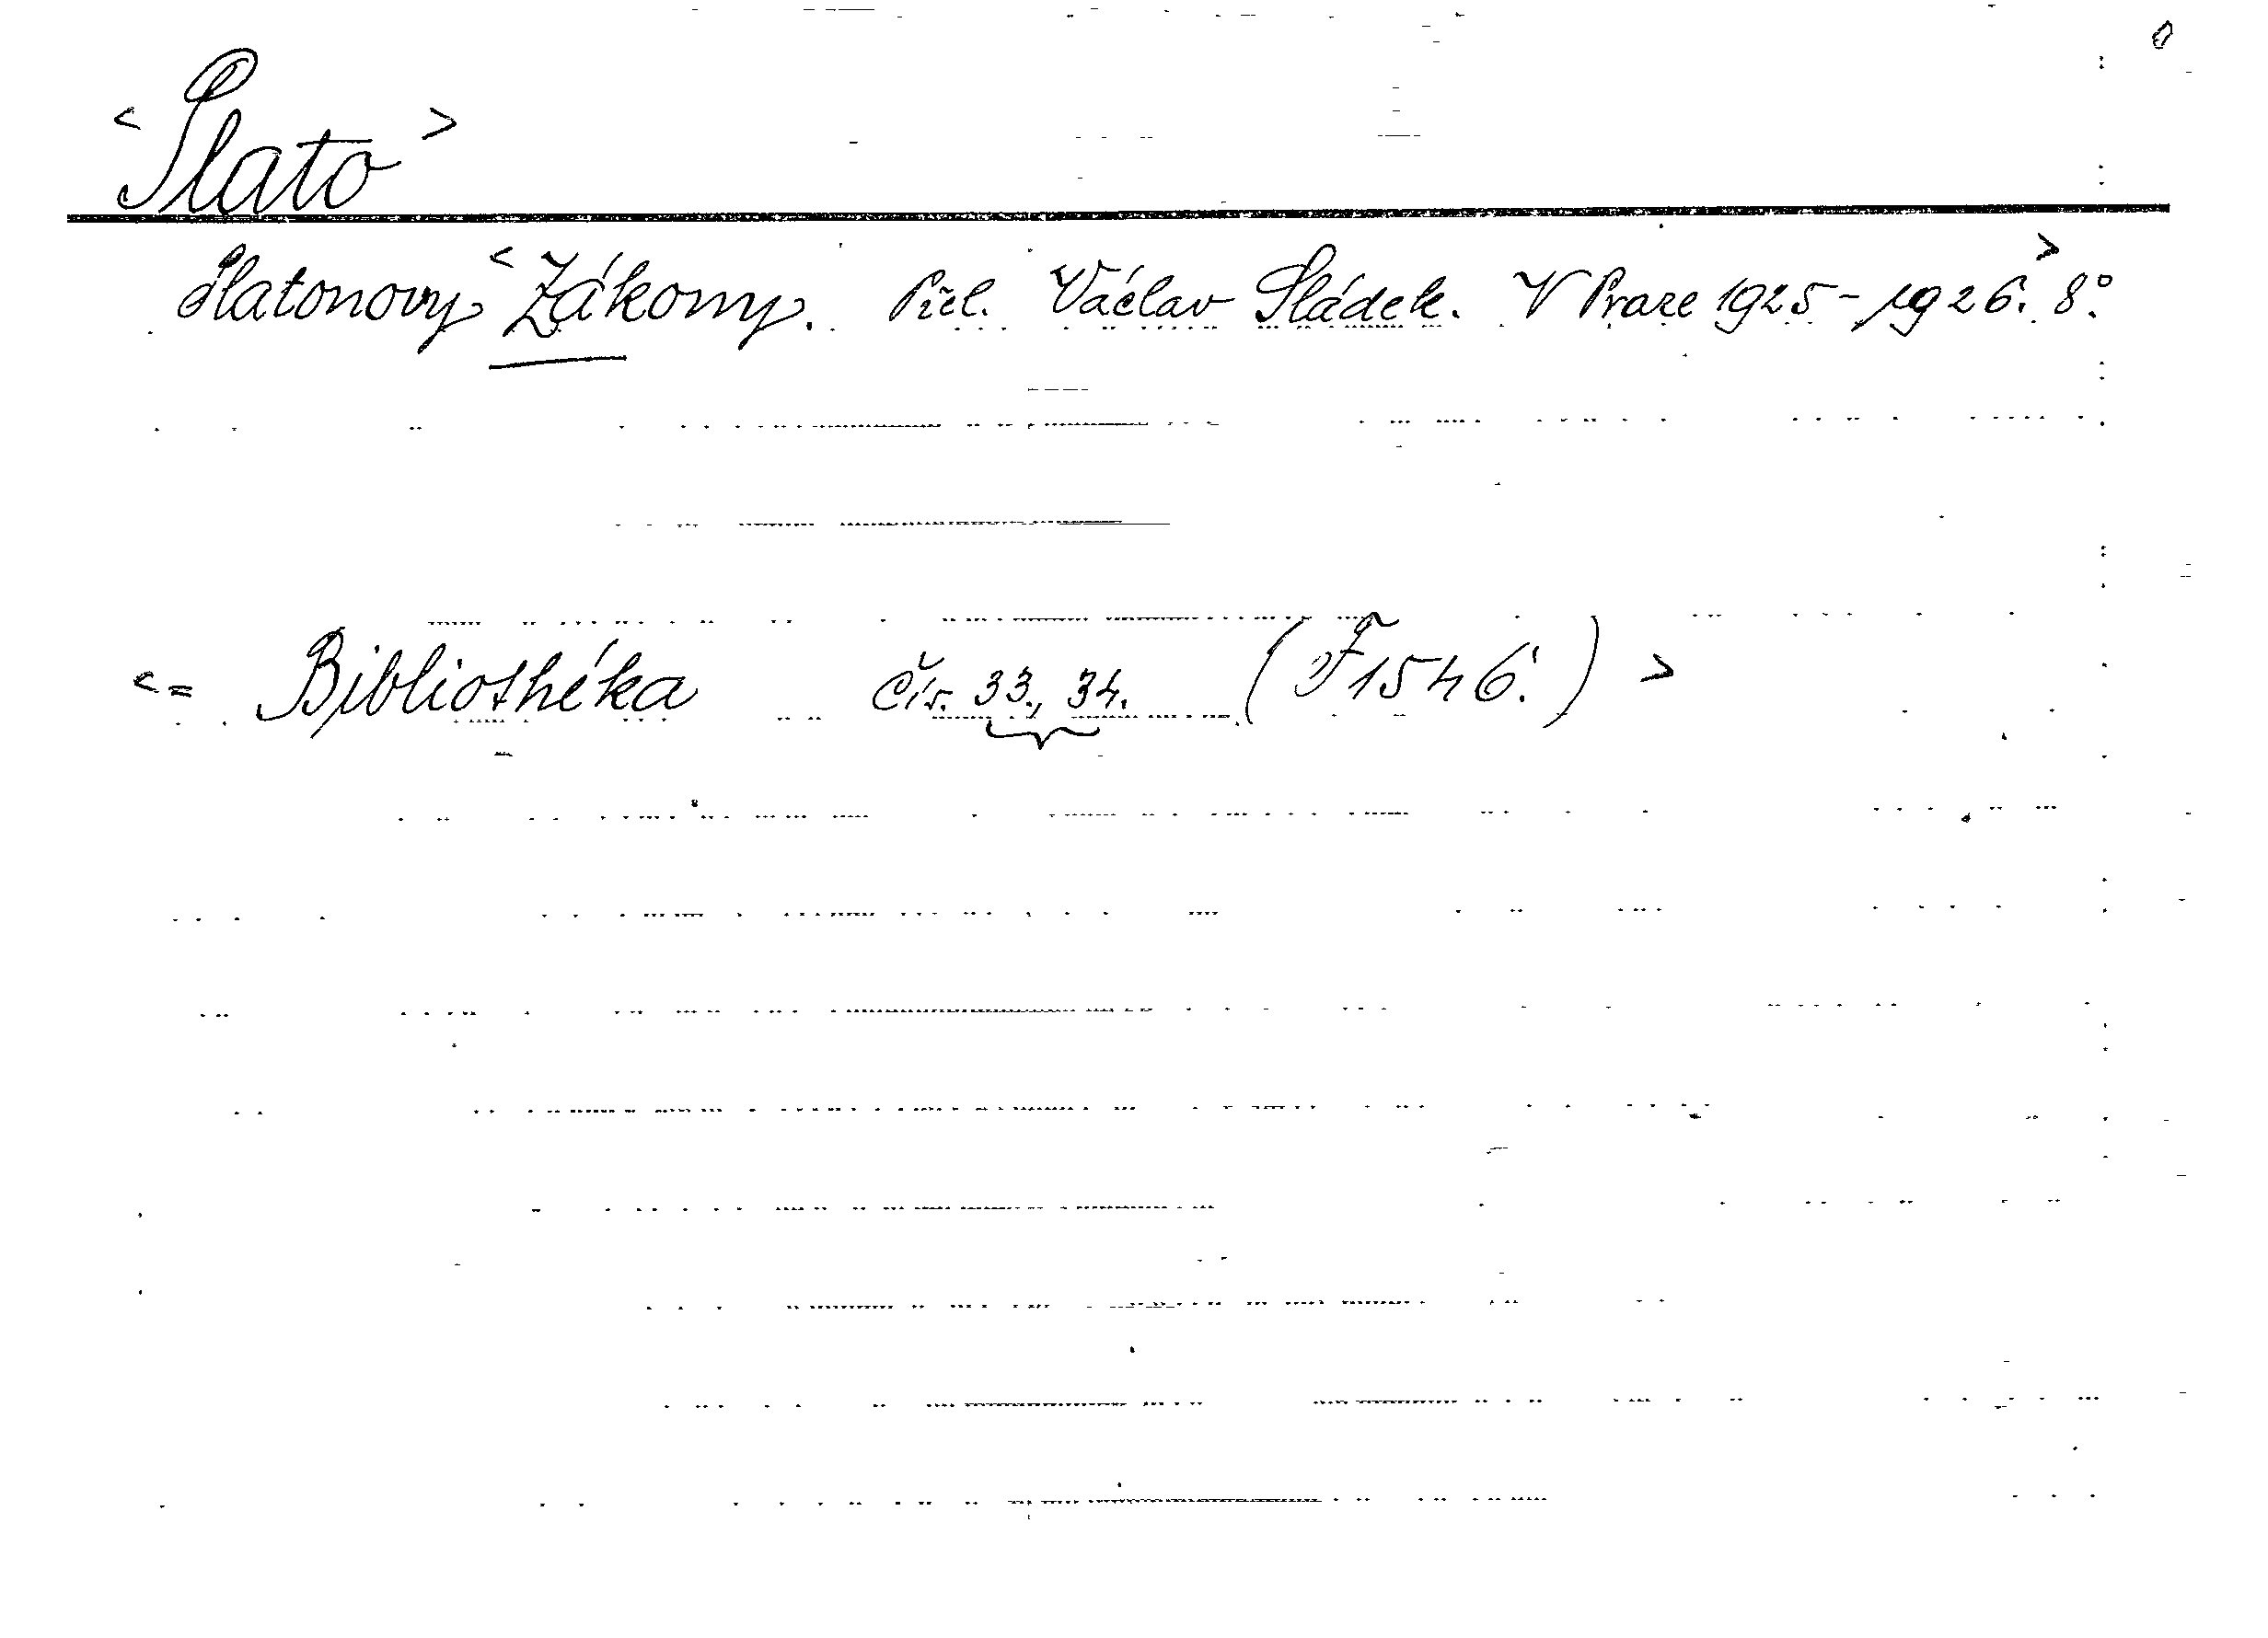 <Plato>
Platonovy <Zákony. Přel. Václav Sládek. V Praze 1925-1926.> 8°.
<= Bibliothéka čís. 33., 34. (F 1546.) >